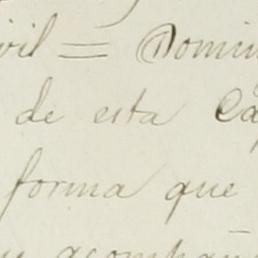 vil = Domin
de esta Ca
forma que
y acompañ